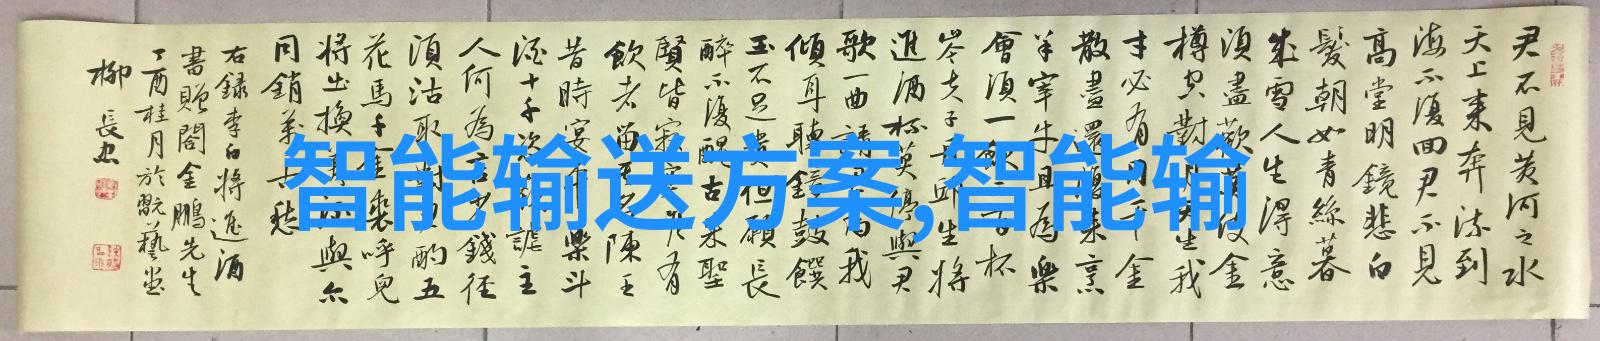 君不見黄河之水
天上來奔流到
海不復回君不見
高堂明鏡悲白
髮朝如青絲暮
成雪人生得意
須盡歡莫使金
樽空對月天生我
才必有用千金
散盡還復來烹
羊宰牛且為樂
會須一飲三百杯
岑夫子丹邱生將
進酒杯莫停與君
歌一曲請君為我
傾耳聽鐘鼓饌
玉不足貴但願長
醉不復醒古來聖
賢皆寂寞唯有
飲者留其名陳王
昔時宴平樂斗
酒十千恣歡謔主
人何為言少錢徑
須沽取對君酌五
花馬千金裘呼兒
將出換美酒與尔
同銷萬古愁
右録李白將進酒
書贈閣金鵬先生
丁酉桂月於翫藝堂
柳長忠
智能输送方案,智能输